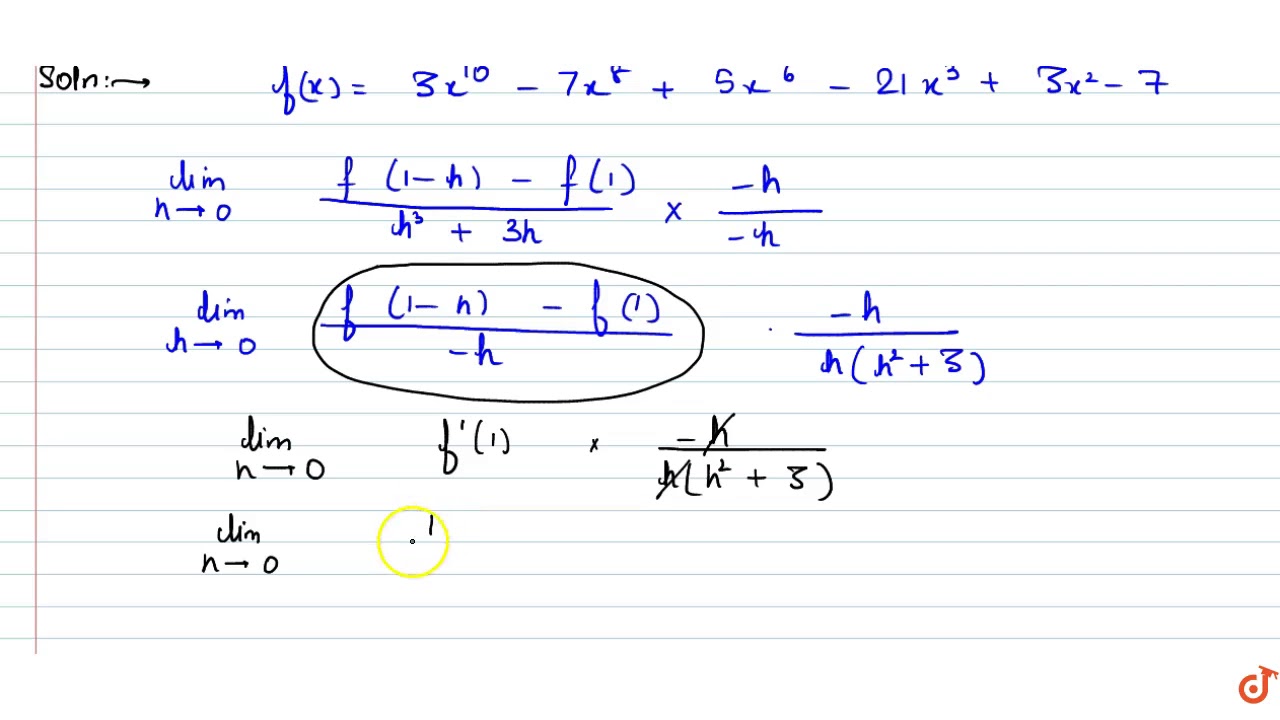 Soln:→ f(x) = 3x¹⁰ - 7x⁸ + 5x⁶ - 21x³ + 3x² - 7
lim f(1-h) - f(1) / h³ + 3h × -h / -h
h→0
lim f(1-h) - f(1) / -h · -h / h(h² + 3)
h→0
lim f'(1) × -h / h(h² + 3)
h→0
lim '
h→0